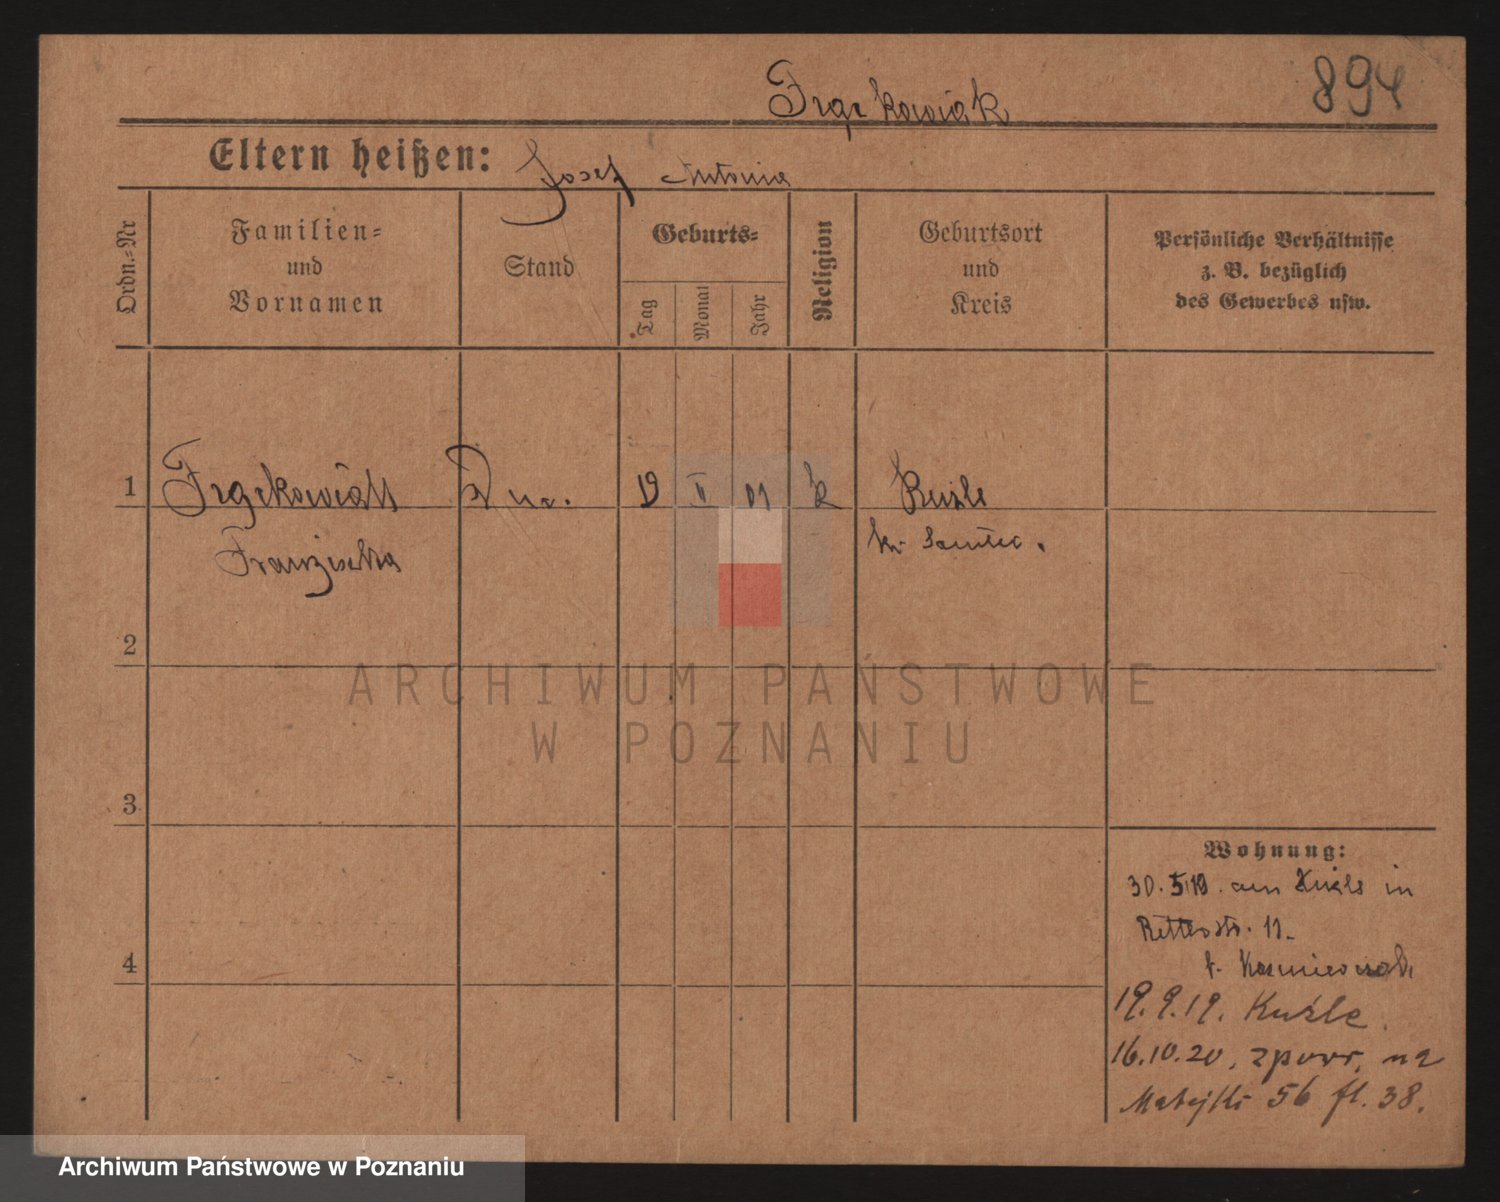 894
Frąckowiak
Eltern heißen: Josef Antonia
Ordn.-Nr
Familien-
und
Vornamen
Stand
Geburts-
Tag
Monat
Jahr
Religion
Geburtsort
und
Kreis
Persönliche Verhältnisse
z. B. bezüglich
des Gewerbes usw.
1 19 II 01 k
Franziska
2
3
4
ARCHIWUM PAŃSTWOWE
W POZNANIU
Wohnung:
30. 5 19. aus in
Ritterstr. 11.
19.9.19. Kuźle.
16.10.20, zpowr. na
Matejki 56 fl. 38.
Archiwum Państwowe w Poznaniu